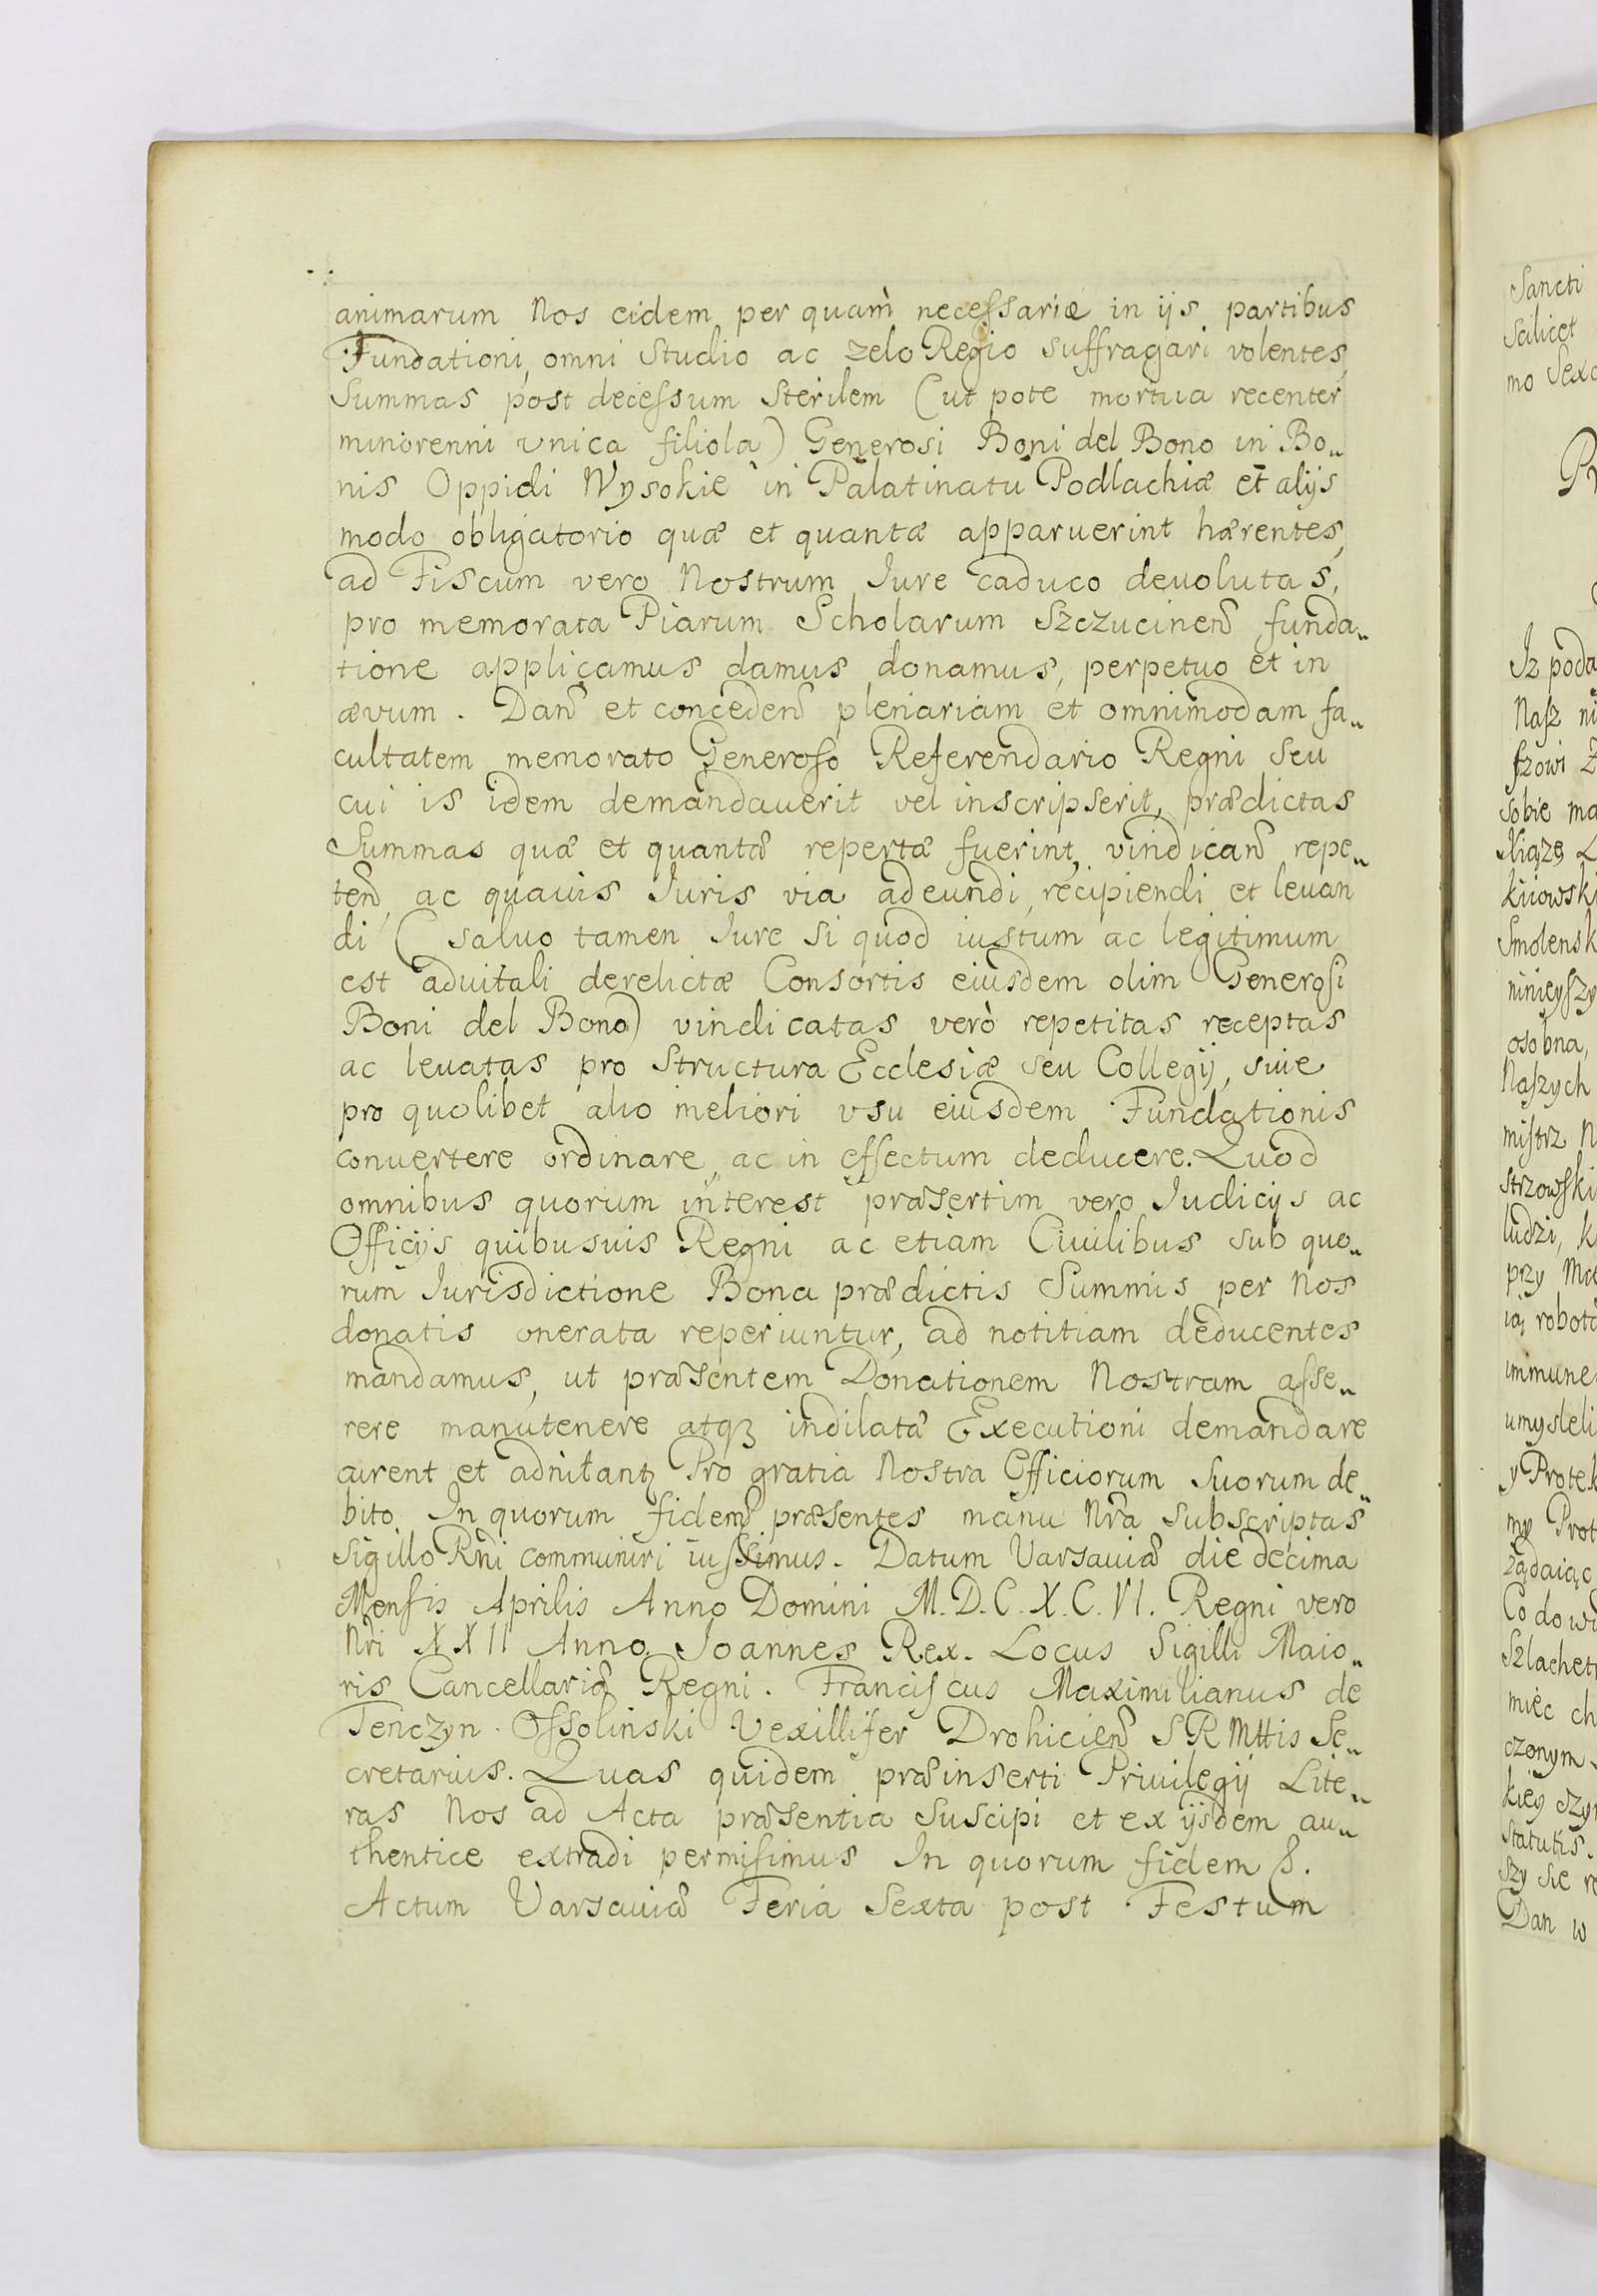 animarum Nos eidem per quam̀ necessariæ in ijs partibus
Fundationi, omni Studio ac zelo Regio suffragari volentes,
Summas post decessum Sterilem (ut pote mortua recenter
minorenni vnica filiola) Generosi Boni del Bono in Bo„
nis Oppidi Wysokie in Palatinatu Podlachiæ et alijs
modo obligatorio quæ et quantæ apparuerint hærentes,
ad Fiscum vero Nostrum Iure caduco deuolutas,
pro memorata Piarum Scholarum Szczucinen̄ funda„
tione applicamus damus donamus, perpetuo et in
ævum. Dan̄ et conceden̄ plenariam et omnimodam fa„
cultatem memorato Generoso Referendario Regni seu
cui is idem demandauerit vel inscripserit, prædictas
Summas quæ et quantæ repertæ fuerint, vindican̄ repe„
ten̄, ac quauis Iuris via adeundi, recipiendi et leuan
di (saluo tamen Iure si quod iustum ac legitimum
est aduitali derelictæ Consortis eiusdem olim Generosi
Boni del Bono) vindicatas verò repetitas receptas
ac leuatas pro Structura Ecclesiæ seu Collegij, siue
pro quolibet alio meliori vsu eiusdem Fundationis
conuertere ordinare, ac in effectum deducere. Quod
omnibus quorum interest præsertim vero Iudicijs ac
Officijs quibusuis Regni ac etiam Ciuilibus sub quo„
rum Iurisdictione Bona prædictis Summis per Nos
donatis onerata reperiuntur, ad notitiam deducentes
mandamus, ut præsentem Donationem Nostram asse„
rere manutenere atqꝫ indilatæ Executioni demandare
curent et adnitantꝫ Pro gratia Nostra Officiorum suorum de„
bito. In quorum fidem præsentes manu Nrã subscriptas
Sigillo Rñi communiri iussimus. Datum Varsauiæ die decima
Mensis Aprilis Anno Domini M.D.C.X.C.VI. Regni vero
Nri XXII Anno. Joannes Rex. Locus Sigilli Maio„
ris Cancellariæ Regni. Franciscus Maximilianus de
Tenczyn Ossolinski Vexillifer Drohicien̄ S R Mttis Se„
cretarius. Quas quidem præinserti Priuilegij Lite„
ras Nos ad Acta præsentia suscipi et ex ijsdem au„
thentice extradi permisimus In quorum fidem &.
Actum Varsauiæ Feria Sexta post Festum
Sancti
Scilicet
mo Sexa
Iz poda
Nasz ni
szowi
sobie ma
Xiąze
kiiowski
Smolensk
ninieyszy
osobna,
Naszych
mistrz N
strzowski
ludzi, k
przy
ią robotą
immunes
umysleli
y Protek
mę Prot
żądaiąc
Co do w
Szlachet
miec ch
czonym
kiey czyn
Statutis.
szy sie
Dan w